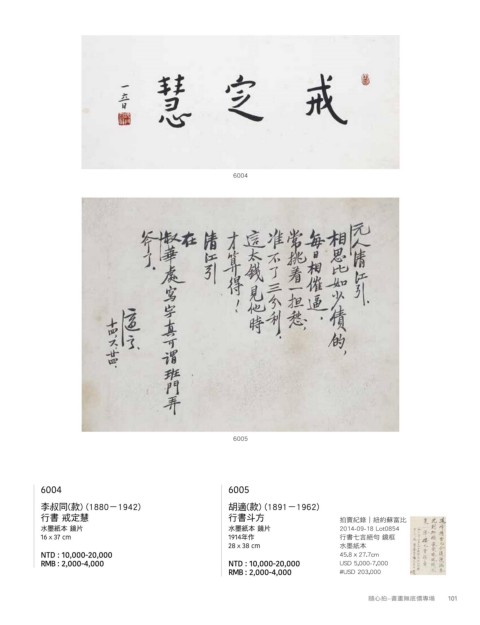 戒定慧
一音
6004
元人清江引。
相思比如少債的,
每日相催逼。
常挑着一担愁,
准不了三分利。
這本錢見他時
才算得!
清江引
在
淑華處寫字真可謂班門弄
斧了。
適之
十四、六、廿四、
6005
6004
李叔同(款) (1880-1942)
行書 戒定慧
水墨紙本 鏡片
16 x 37 cm
NTD : 10,000-20,000
RMB : 2,000-4,000
6005
胡適(款) (1891-1962)
行書斗方
水墨紙本 鏡片
1914年作
28 x 38 cm
NTD : 10,000-20,000
RMB : 2,000-4,000
拍賣紀錄|紐約蘇富比
2014-09-18 Lot0854
行書七言絕句 鏡框
水墨紙本
45.8 x 27.7cm
USD 5,000-7,000
#USD 203,000
隨心拍-書畫無底價專場 101